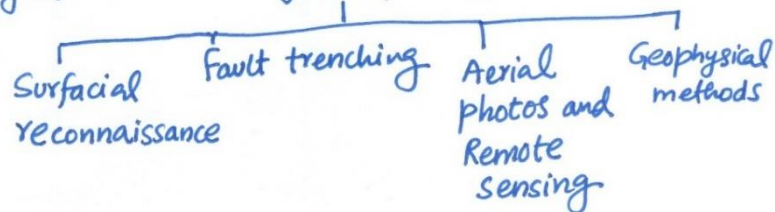 Surfacial
reconnaissance
Fault trenching
Aerial
photos and
Remote
Sensing
Geophysical
methods